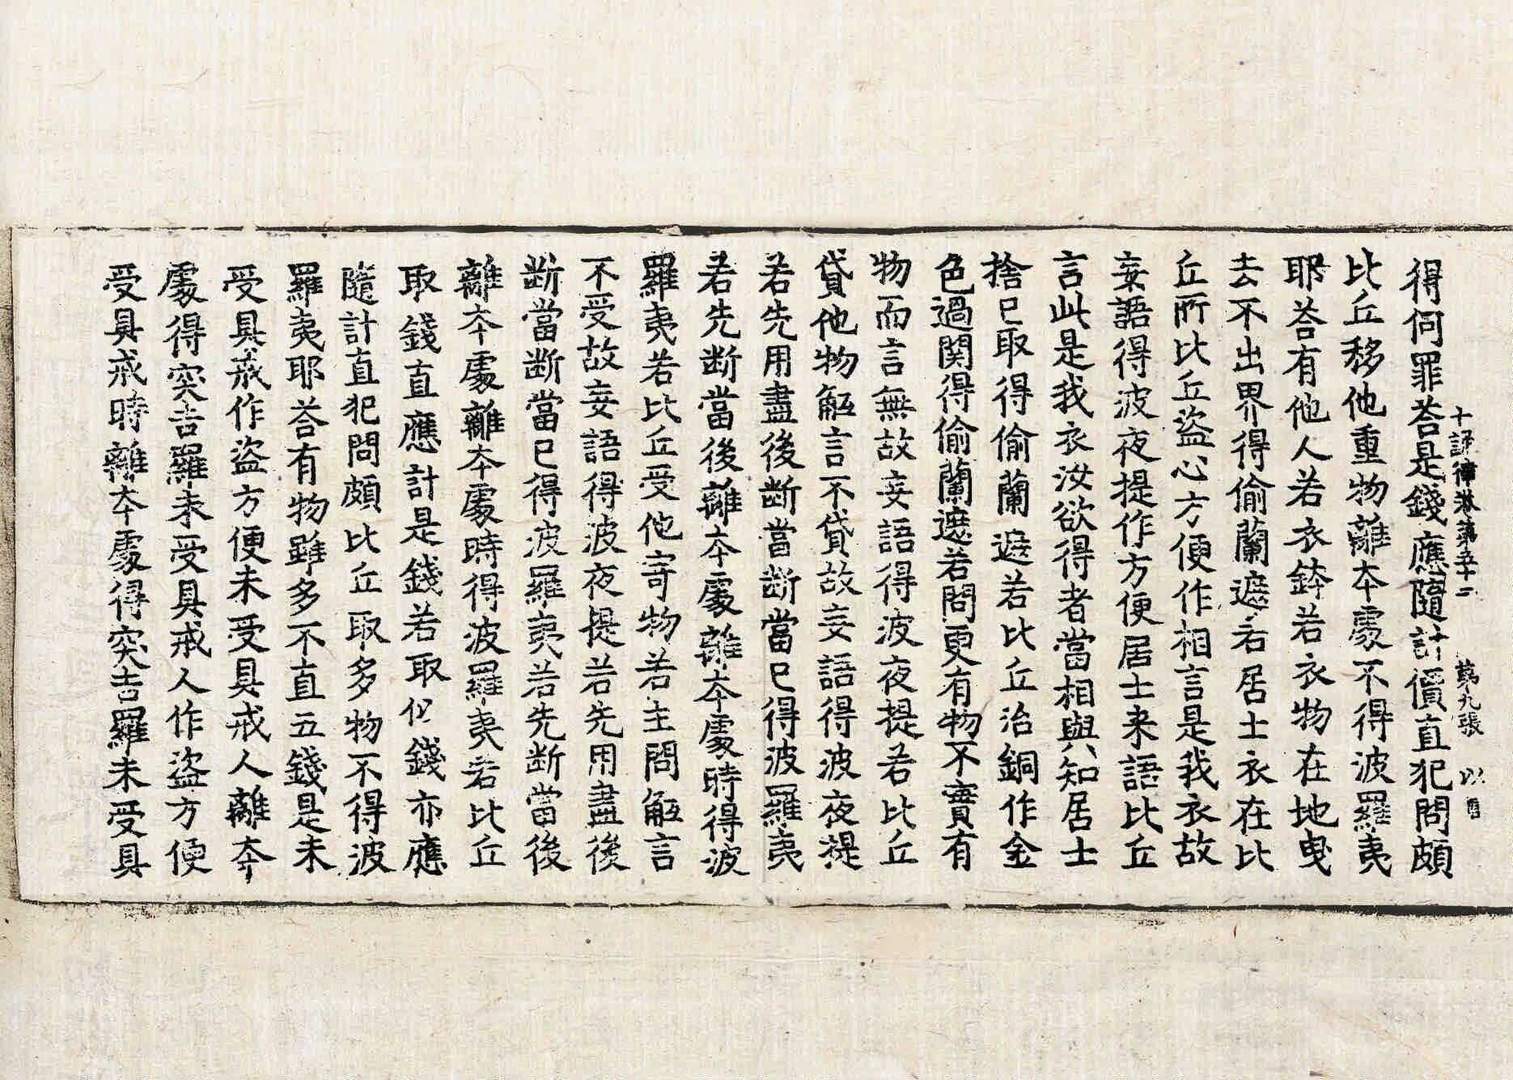 十誦律卷第五十二　第九張　以
得何罪荅是錢應隨計價直犯問頗
比丘移他重物離本處不得波羅夷
耶荅有他人若衣鉢若衣物在地曳
去不出界得偷蘭遮若居士衣在比
丘所比丘盜心方便作相言是我衣故
妄語得波夜提作方便居士来語比丘
言此是我衣汝欲得者當相與知居士
捨已取得偷蘭遮若比丘治銅作金
色過関得偷蘭遮若問更有物不實有
物而言無故妄語得波夜提若比丘
貸他物觝言不貸故妄語得波夜提
若先用盡後断當断當已得波羅夷
若先断當後離本處離本處時得波
羅夷若比丘受他寄物若主問觝言
不受故妄語得波夜提若先用盡後
断當断當已得波羅夷若先断當後
離本處離本處時得波羅夷若比丘
取錢直應計是錢若取似錢亦應
隨計直犯問頗比丘取多物不得波
羅夷耶荅有物雖多不直五錢是未
受具戒作盜方便未受具戒人離本
處得突吉羅未受具戒人作盜方便
受具戒時離本處得突吉羅未受具